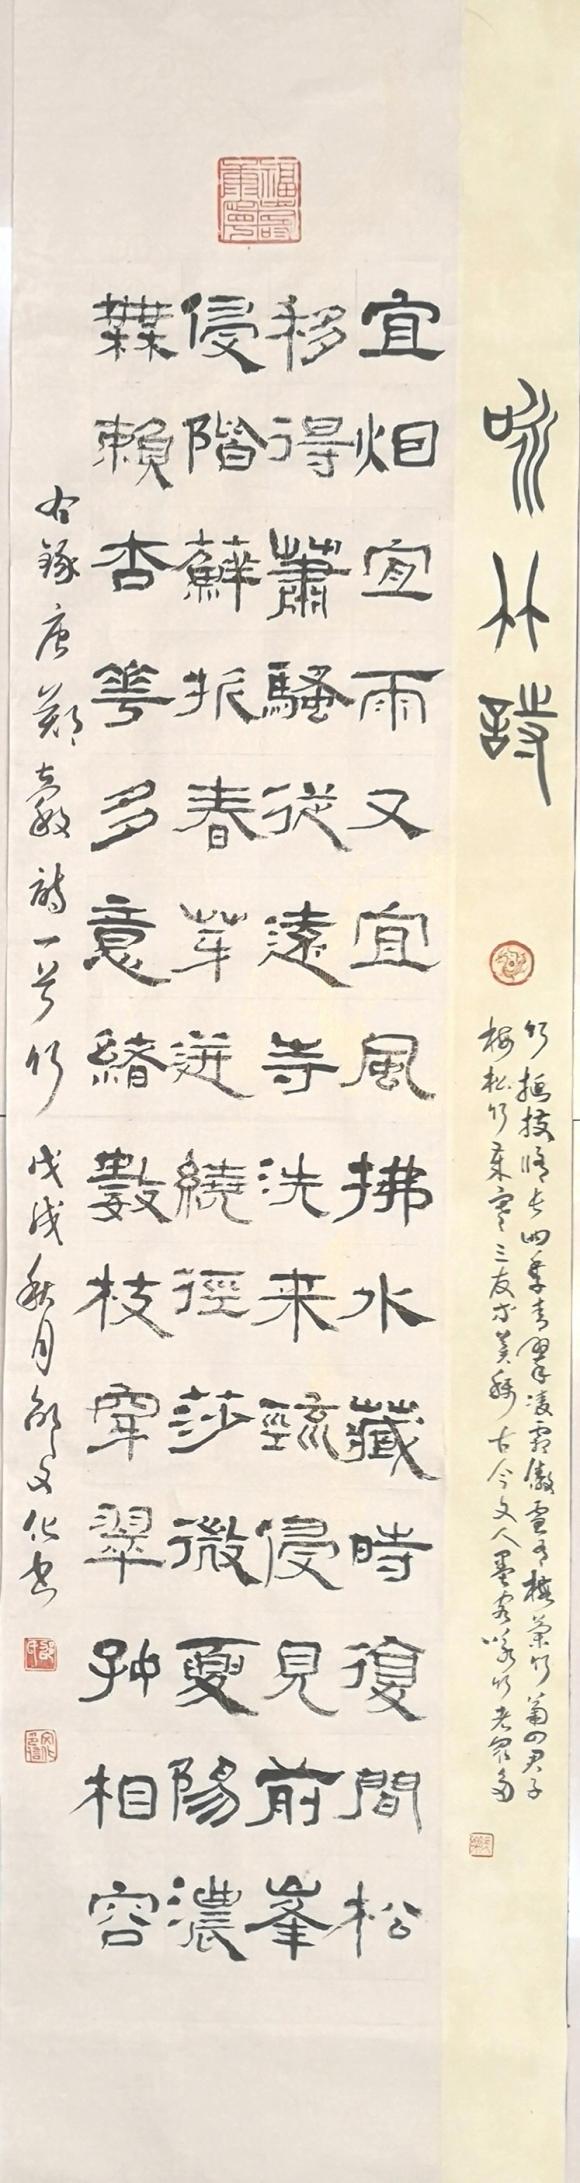 福壽康寧
詠竹詩
竹挺拔修长四季青翠凌霜傲雪有梅蘭竹菊四君子
梅松竹歲寒三友等美稱古今文人墨客咏竹者眾多
宜烟宜雨又宜風拂水藏時復間松
移得蕭騷從遠寺洗来疏侵見前峯
侵階蘚拆春芽迸繞徑莎微夏陽濃
無賴杏花多意緒數枝穿翠好相容
右錄唐鄭穀詩一首竹 戊戌秋月邵文化书